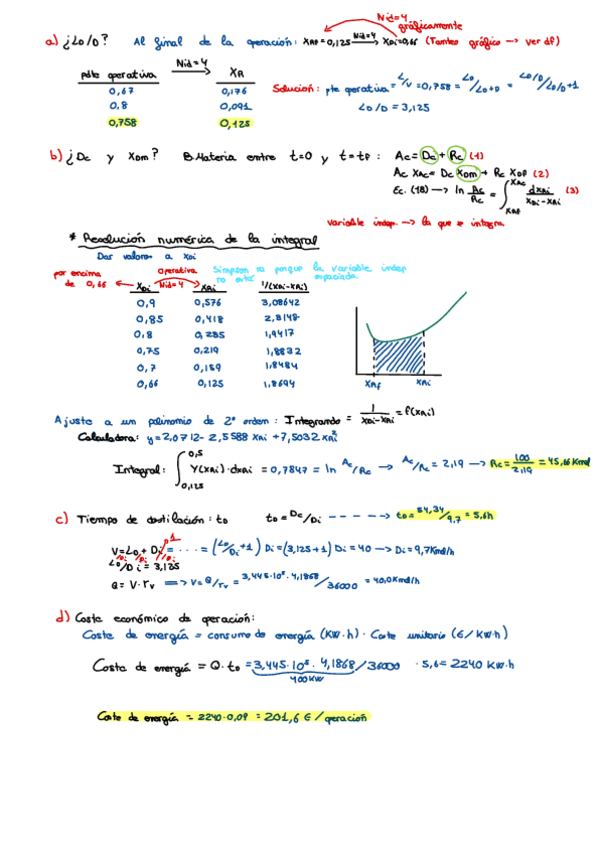 Nid=4
gráficamente
a) ¿Lo/D? Al final de la operación: XRF=0,125 Nid=4 XDi=0,66 (Tanteo gráfico → ver df)
pdte operativa Nid=4 XR
0,67 0,176
0,8 0,091
0,758 0,125
Solución: pte operativa = L/V = 0,758 = Lo/Lo+D = Lo/D/Lo/D+1
Lo/D = 3,125
b) ¿Dc y XDm? B.Materia entre t=0 y t=tF: Ac = Dc + Rc (1)
Ac XAc = Dc XDm + Rc XRF (2)
Ec. (18) → ln Ac/Rc = ∫ XRF XAc dXRi/XDi-XRi (3)
variable indep. → la que se integra.
* Resolución numérica de la integral
Dar valores a XDi
por encima de 0,66
Operativa
Nid=4
Simpson no porque la variable indep no está espaciada.
XDi XRi 1/(XDi-XRi)
0,9 0,576 3,08642
0,85 0,418 2,3148
0,8 0,285 1,9417
0,75 0,219 1,8832
0,7 0,159 1,8484
0,66 0,125 1,8694
XRF XRi
Ajuste a un polinomio de 2º orden: Integrando = 1/XDi-XRi = f(XRi)
Calculadora: y=2,0712-2,5588 XRi +7,5032 XRi²
Integral: ∫ 0,125 0,5 Y(XRi)·dXRi = 0,7847 = ln Ac/Rc → Ac/Rc = 2,19 → Rc = 100/2,19 = 45,66 Kmol
c) Tiempo de destilación: tD tD = Dc/Di - - - - - → tD = 54,34/9,7 = 5,6h
V = Lo + Di = ··· = (Lo/Di + 1) Di = (3,125+1) Di = 40 → Di = 9,7Kmol/h
Di Di Di 1
Lo/Di = 3,125
Q = V·rv ⟹ V = Q/rv = 3,445·10⁵·4,1868/36000 = 40,0Kmol/h
d) Coste económico de operación:
Coste de energía = consumo de energía (KW·h) · Coste unitario (€/KW·h)
Costa de energía = Q·tD = 3,445·10⁵·4,1868/36000 · 5,6 = 2240 KW·h
400KW
Coste de energía = 2240·0,09 = 201,6 €/operación